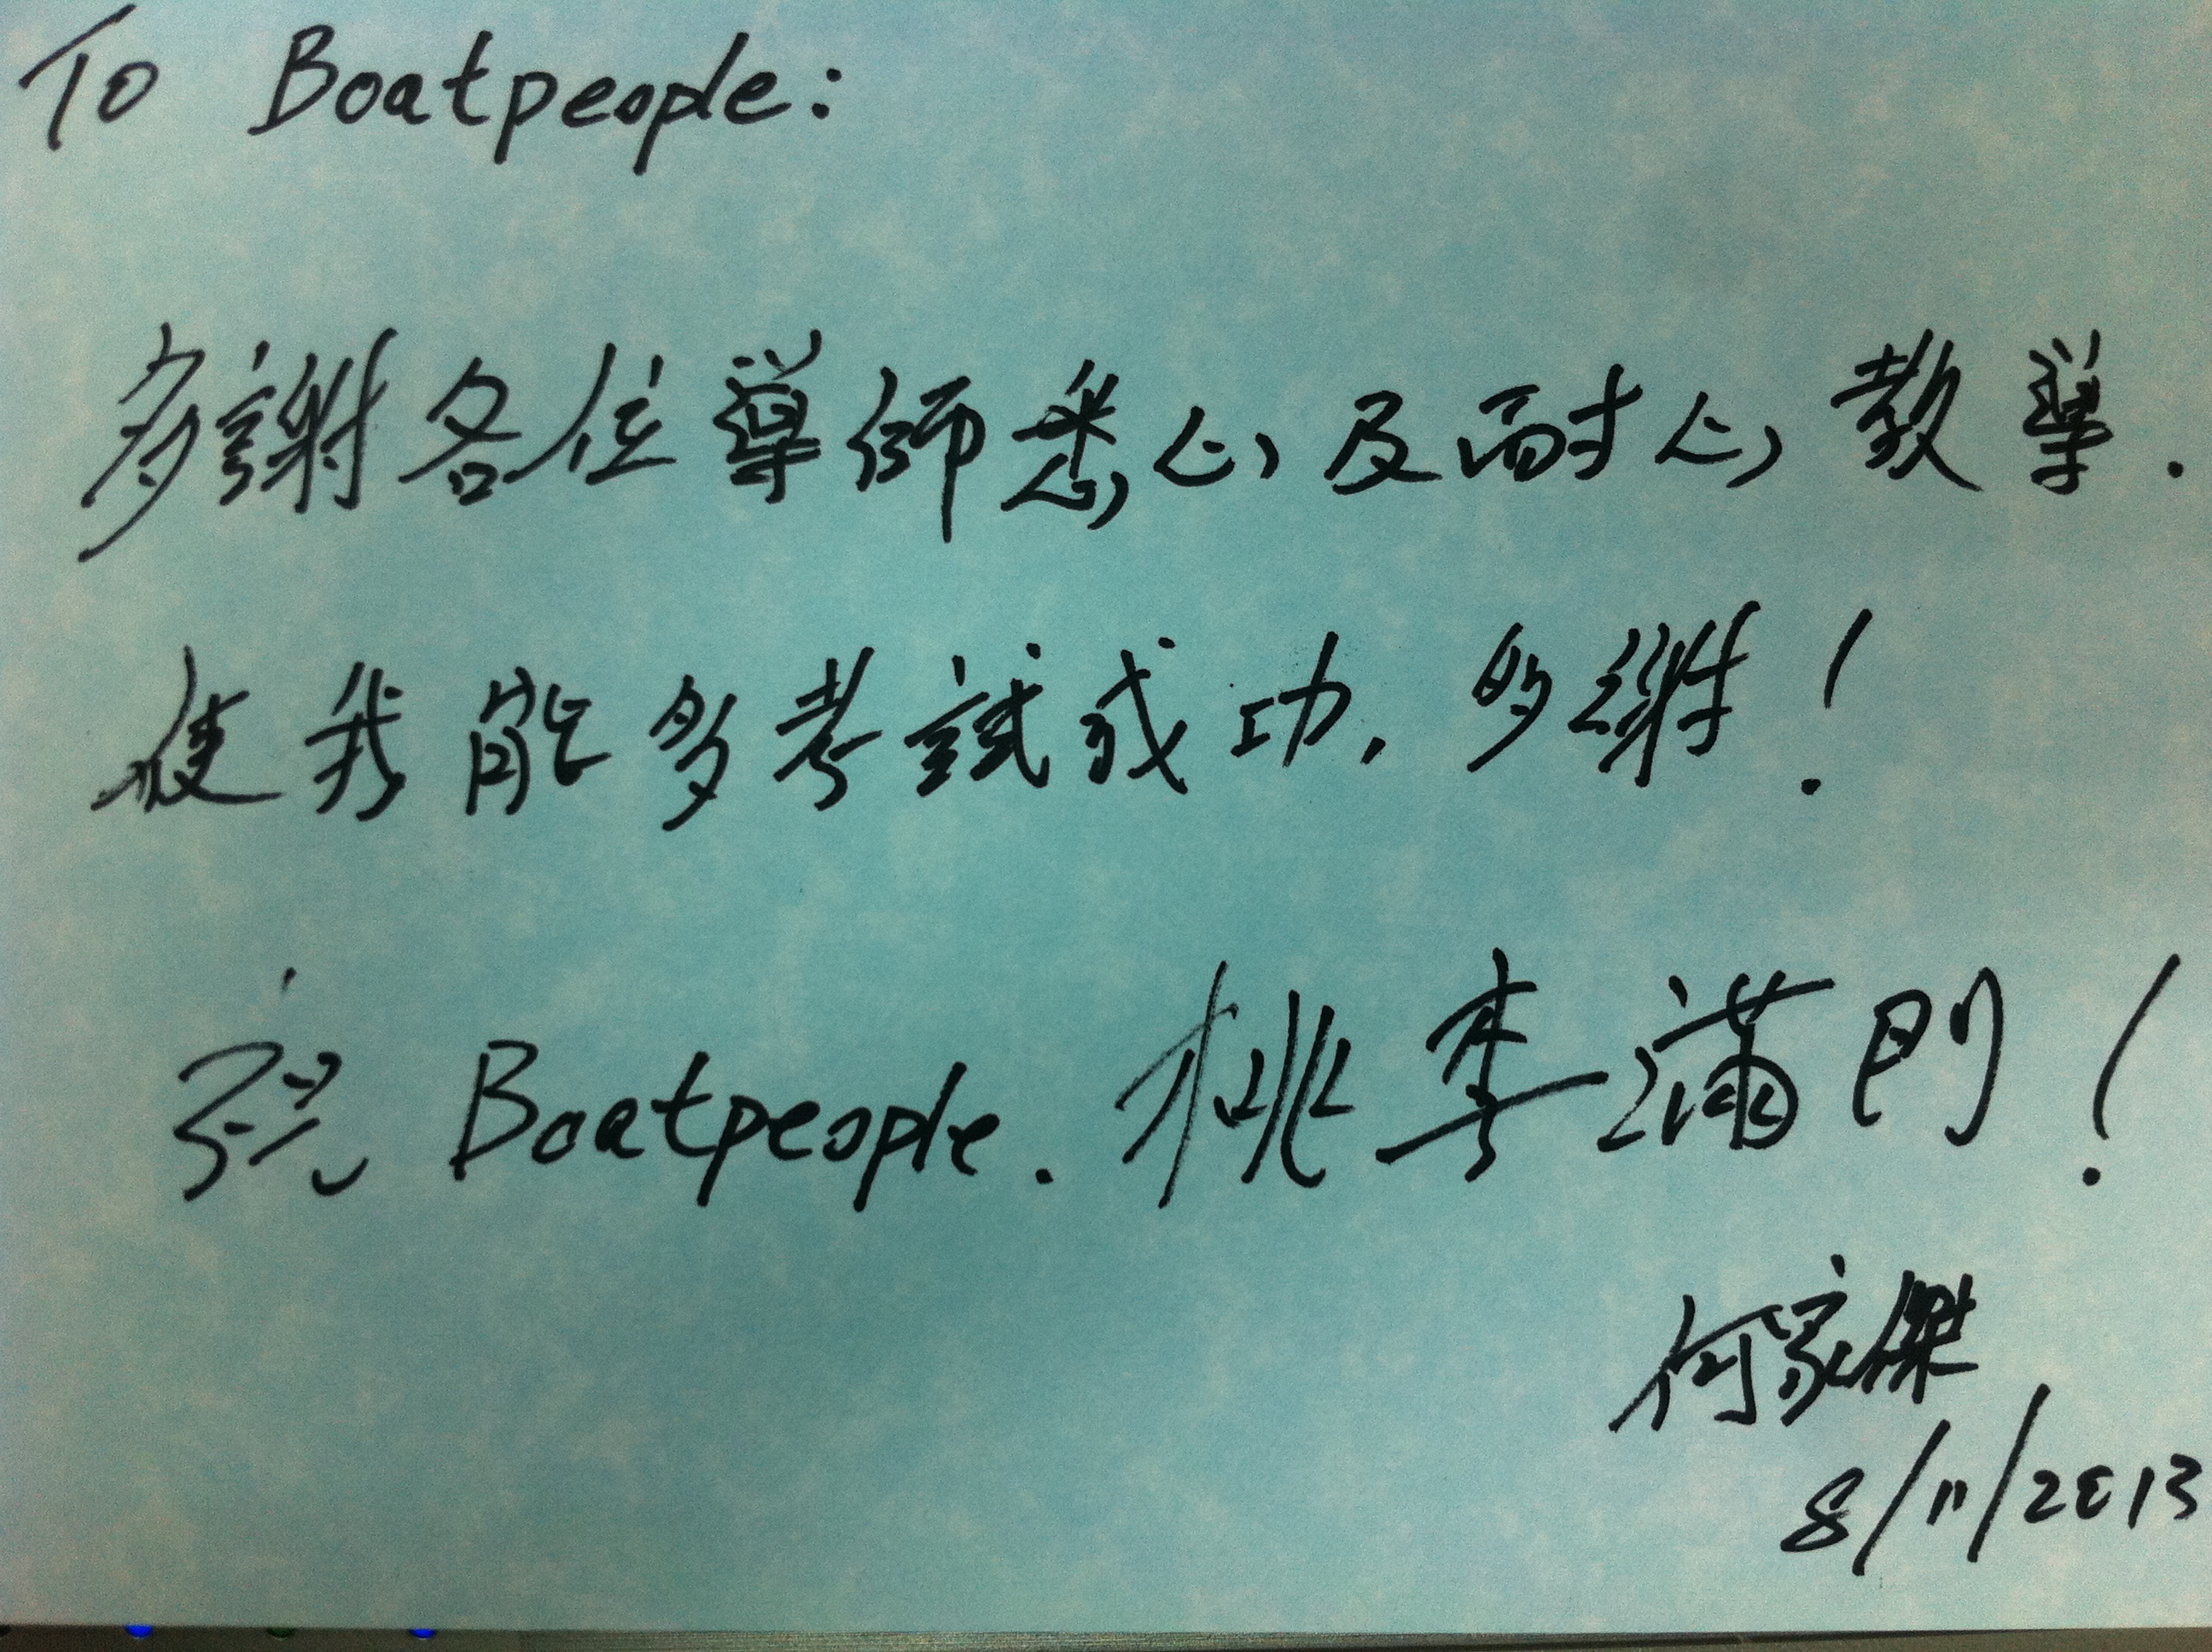 To Boatpeople:
多謝各位導師悉心及耐心教導.
使我能多考試成功, 多謝!
祝 Boatpeople. 桃李滿門!
何家傑
8/11/2013